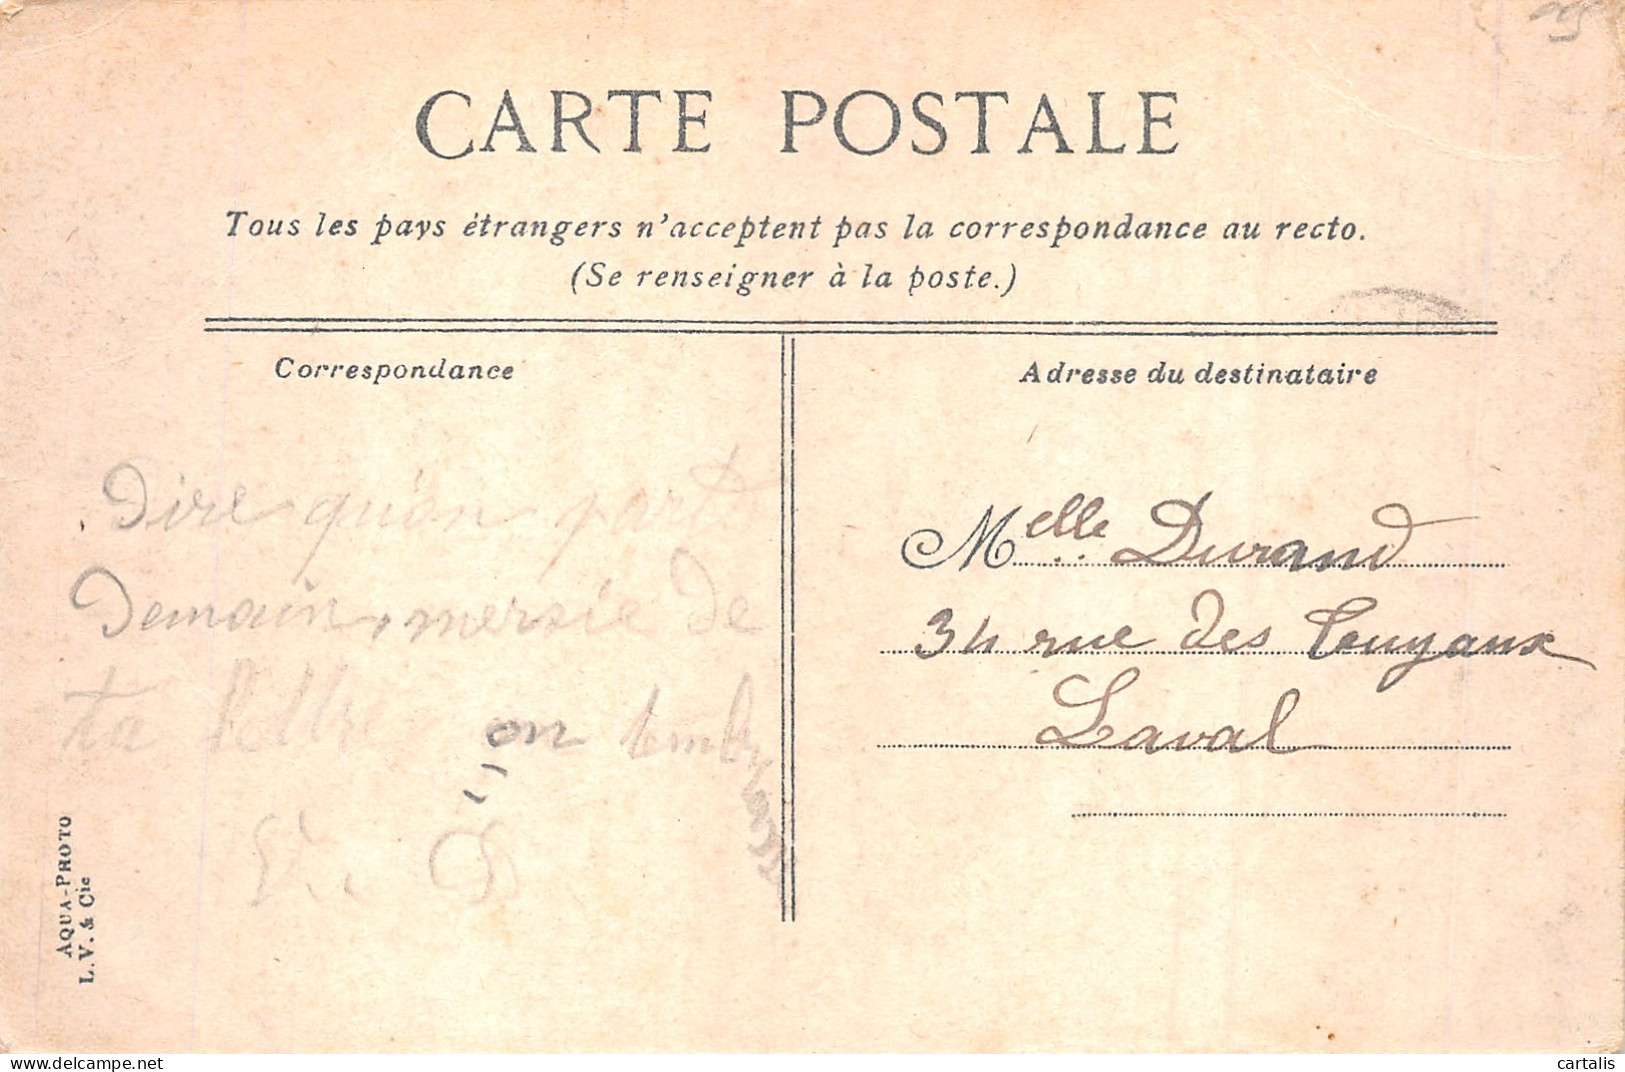 CARTE POSTALE
Tous les pays étrangers n'acceptent pas la correspondance au recto.
(Se renseigner à la poste.)
Correspondance
Dire qu'on part
Demain, mersie de
ta lettre on embrasse
Adresse du destinataire
Melle Durand
34 rue des Tuyaux
Laval
AQUA-PHOTO
L.V. & Cie
cartalis